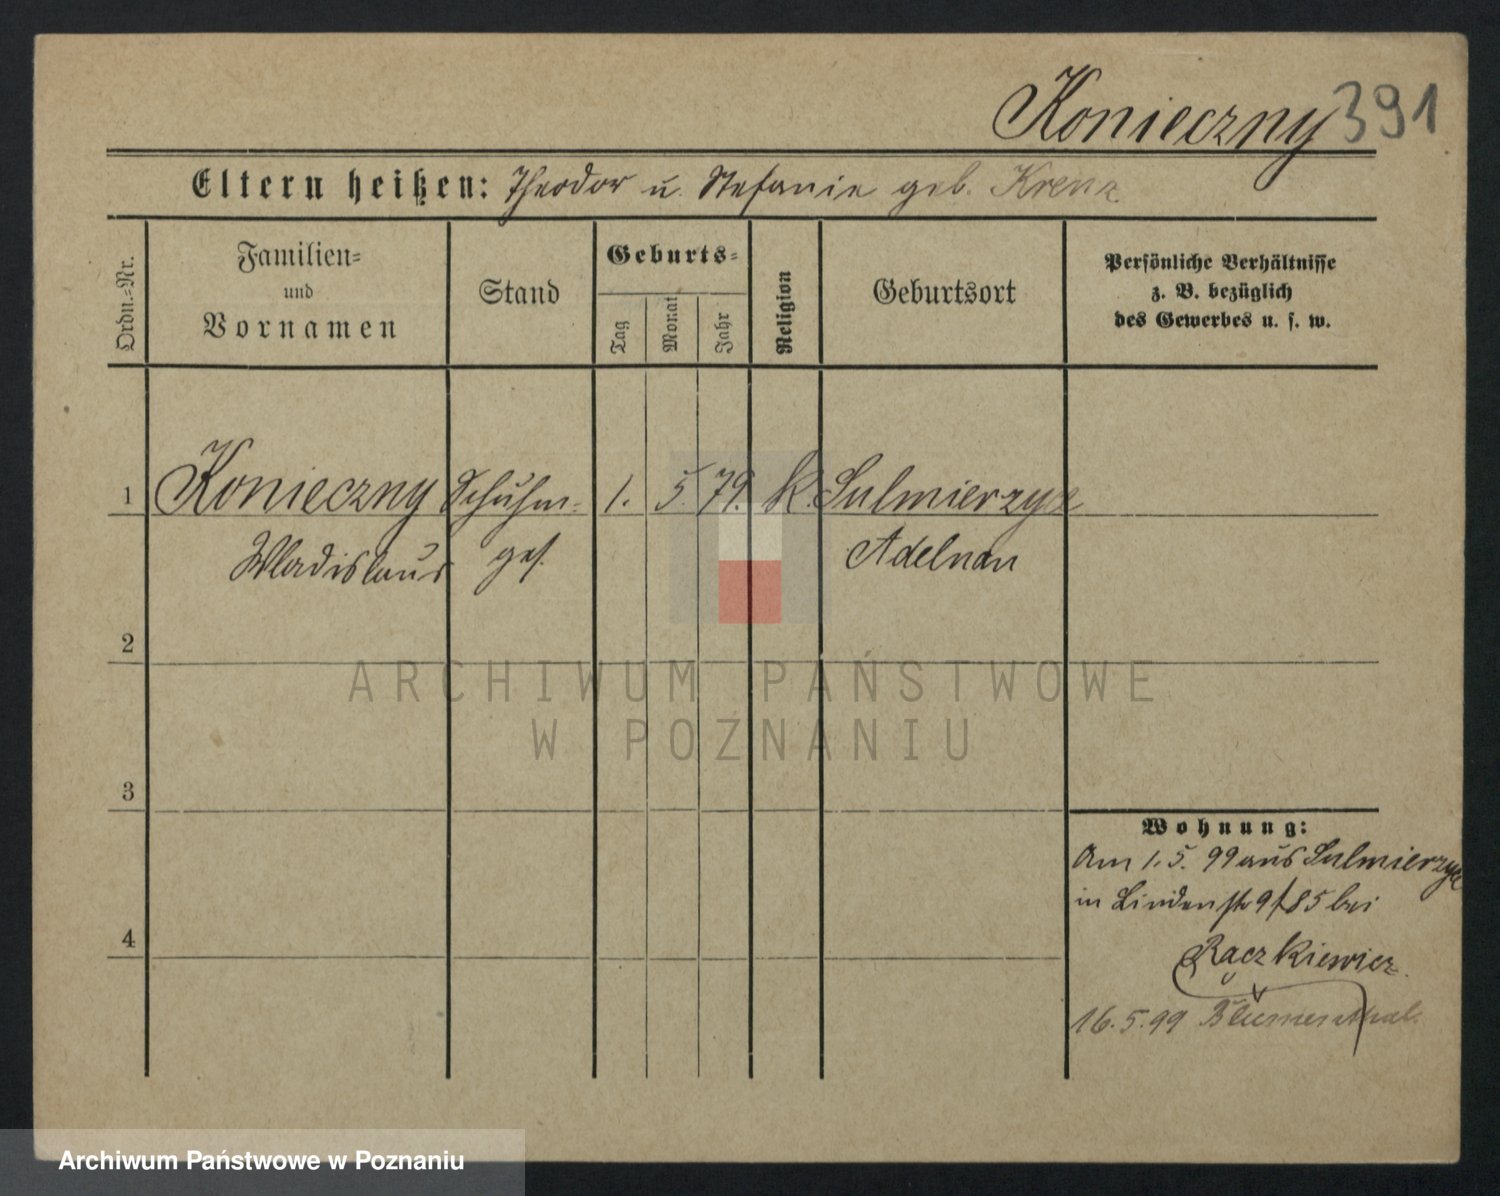 Konieczny 391
Eltern heißen: Theodor u. Stefanie geb. Krenz
Ordn.-Nr.
Familien-
und
Vornamen
Stand
Geburts-
Tag
Monat
Jahr
Religion
Geburtsort
Persönliche Verhältnisse
z. B. bezüglich
des Gewerbes u. s. w.
1 Konieczny Schuhm- 1. 5. 79. k. Sulmierzyce
Wladislaus ges. Adelnau
2
ARCHIWUM PAŃSTWOWE
W POZNANIU
3
Wohnung:
Am 1. 5. 99 aus Sulmierzyce
in Lindenstr 9/85 bei
4
Rączkiewicz
16. 5. 99 Blumenthal.
Archiwum Państwowe w Poznaniu